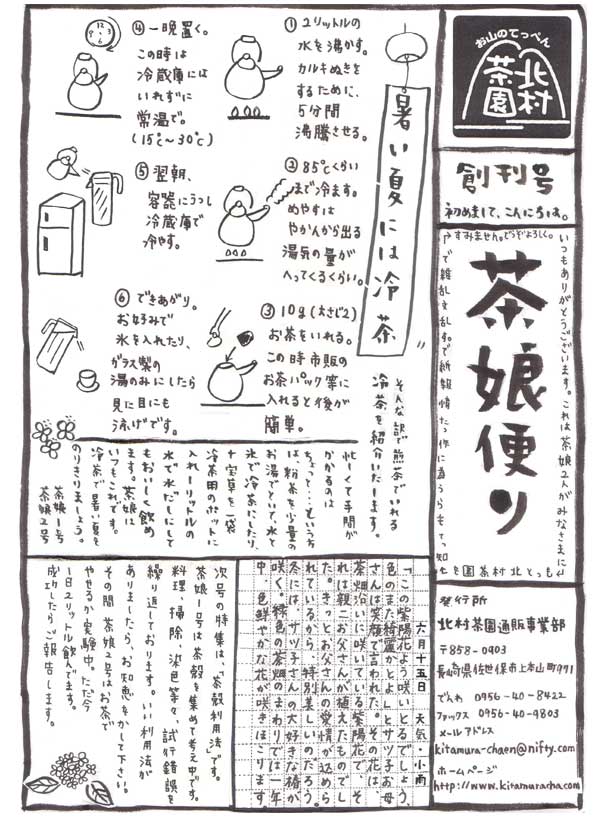 お山のてっぺん
北村
茶園
創刊号
初めまして、こんにちは。
茶娘便り
いつもありがとうございます。これは茶娘2人がみなさまに
もっと北村茶園を
知ってもらう為に作った情報紙です。乱文乱雑で
すみません。どうぞよろしく。
発行所
北村茶園通販事業部
〒858-0903
長崎県佐世保市上本山町971
でんわ 0956-40-8422
ファックス 0956-40-9803
メールアドレス
kitamura-chaen@nifty.com
ホームページ
http://www.kitamuracha.com
暑い夏には冷茶
そんな訳で煎茶でいれる
冷茶を紹介いたします。
① 2リットルの
水を沸かす。
カルキぬきを
するために、
5分間
沸騰させる。
② 85℃くらい
まで冷ます。
めやすは
やかんから出る
湯気の量が
へってくるくらい。
③ 10g(大さじ2)
お茶をいれる。
この時市販の
お茶パック等に
入れると後が
簡単。
④ 一晩置く。
この時は
冷蔵庫には
いれずに
常温で。
(15℃~30℃)
⑤ 翌朝、
容器にうつし
冷蔵庫で
冷やす。
⑥ できあがり。
お好みで
氷を入れたり、
ガラス製の
湯のみにしたら
見た目にも
涼げです。
忙しくて手間が
かかるのは
ちょっ…という方
は粉茶を少量の
お湯でといて、水と
氷で冷茶にしたり、
十宝草を一袋
冷茶用のポットに
入れ一リットルの
水で水だしにして
もおいしく飲め
ます。茶娘は
いつもこれです。
冷茶で暑い夏を
のりきりましょう。
茶娘1号
茶娘2号
六月十五日 天気・小雨
「この紫陽花よう咲いとるでしょう。
色のまた綺麗かとよ」とサツ子お母
さんは笑顔で言われた。その花は
茶畑沿いに咲いている紫陽花で、そ
れは親二お父さんが植えたものでし
た。きっとお父さんの愛情が込めら
れているから、特別美しいのだろう。
冬にはサツ子さんの大好きな椿が
咲く。緑色の茶畑のまわりでは一年
中、色鮮やかな花が咲きほこります
次号の特集は、「茶殻利用法」です。
茶娘1号は茶殻を集めて考え中です。
料理、掃除、染色等々、試行錯誤を
繰り返しております。いい利用法が
ありましたら、お知恵をかして下さい。
その間茶娘2号はお茶で
やせるか実験中。ただ今
1日2リットル飲んでます。
成功したらご報告します。